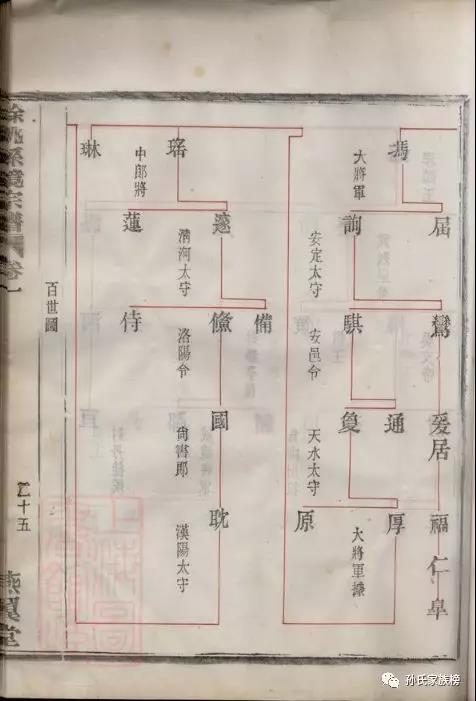 馮
大將軍
中郎將
琳
屆
詢
安定太守
邃
清河太守
蓮
鸞
騏
安邑令
備
儉
洛陽令
侍
爰居
通
夐
天水太守
國
尚書郎
福
仁
皋
厚
大將軍掾
原
耽
漢陽太守
百世圖
餘姚孫境宗譜
卷一
二十五
燕翼堂
孙氏家族榜